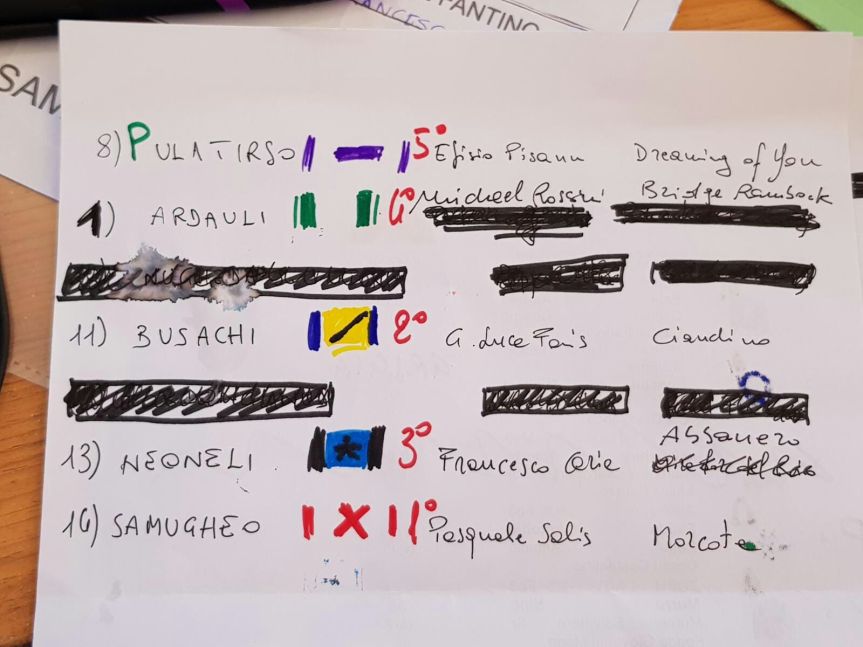 PANTINO
ANCESC
SAM
8) PULATIRSO 5° Efisio Pisanu Dreaming of You
1) ARDAULI 4° Michael Rossini Bridge Ramback
11) BUSACHI 2° G. Luca Fais Ciandino
13) NEONELI 3° Francesco Oria Assanero
16) SAMUGHEO 1° Pasquale Salis Morcote